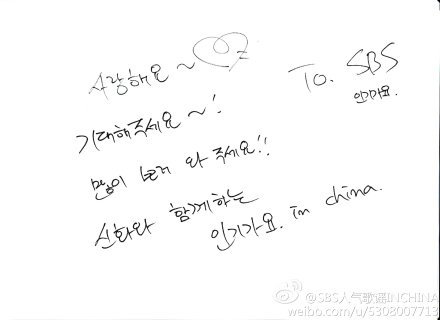 To. SBS
인기가요.
사랑해요 ~
기대해주세요 ~!
많이 보러 와 주세요!!
신화와 함께하는
인기가요. in china.
@SBS人气歌谣INCHINA
weibo.com/u/5308007713